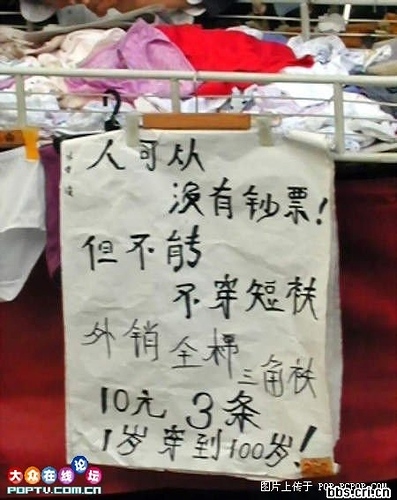 人可从
没有钞票!
但不能
不穿短衭
外销全棉
三角衭
10元 3条
1岁穿到100岁!
大众在线论坛
POPTV.COM.CN
图片上传于 POP.PCPOP.COM
bbs.cri.cn